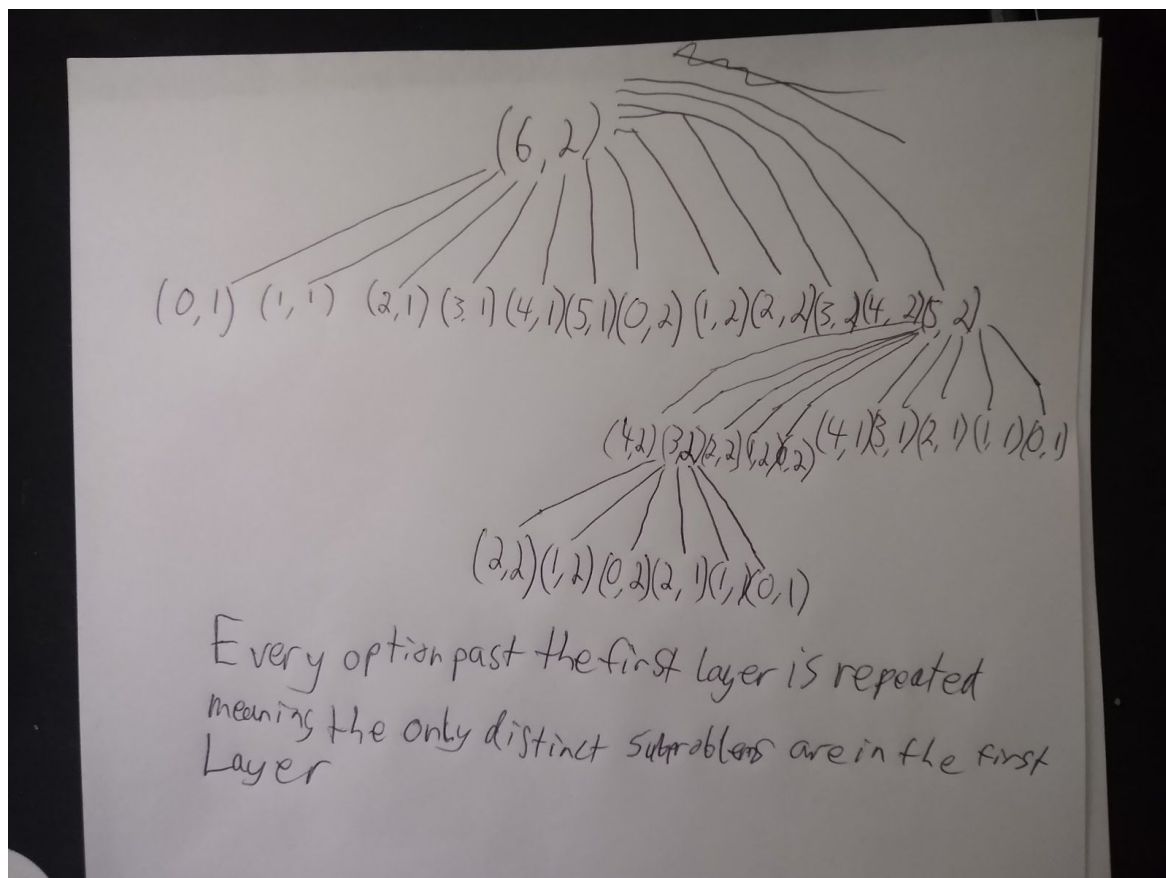 (6, 2)
(0, 1) (1, 1) (2, 1) (3, 1) (4, 1) (5, 1) (0, 2) (1, 2) (2, 2) (3, 2) (4, 2) (5, 2)
(4, 2) (3, 2) (2, 2) (1, 2) (0, 2) (4, 1) (3, 1) (2, 1) (1, 1) (0, 1)
(2, 2) (1, 2) (0, 2) (2, 1) (1, 1) (0, 1)
Every option past the first layer is repeated
meaning the only distinct subproblems are in the first
Layer